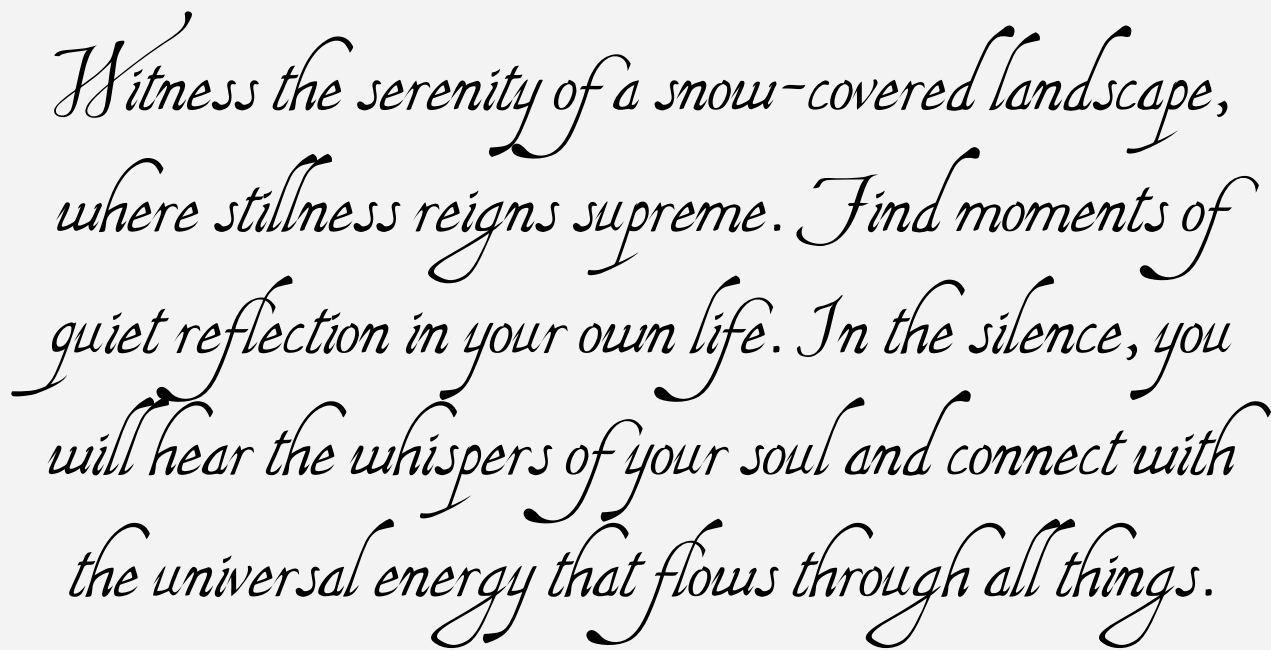 Witness the serenity of a snow-covered landscape,
where stillness reigns supreme. Find moments of
quiet reflection in your own life. In the silence, you
will hear the whispers of your soul and connect with
the universal energy that flows through all things.